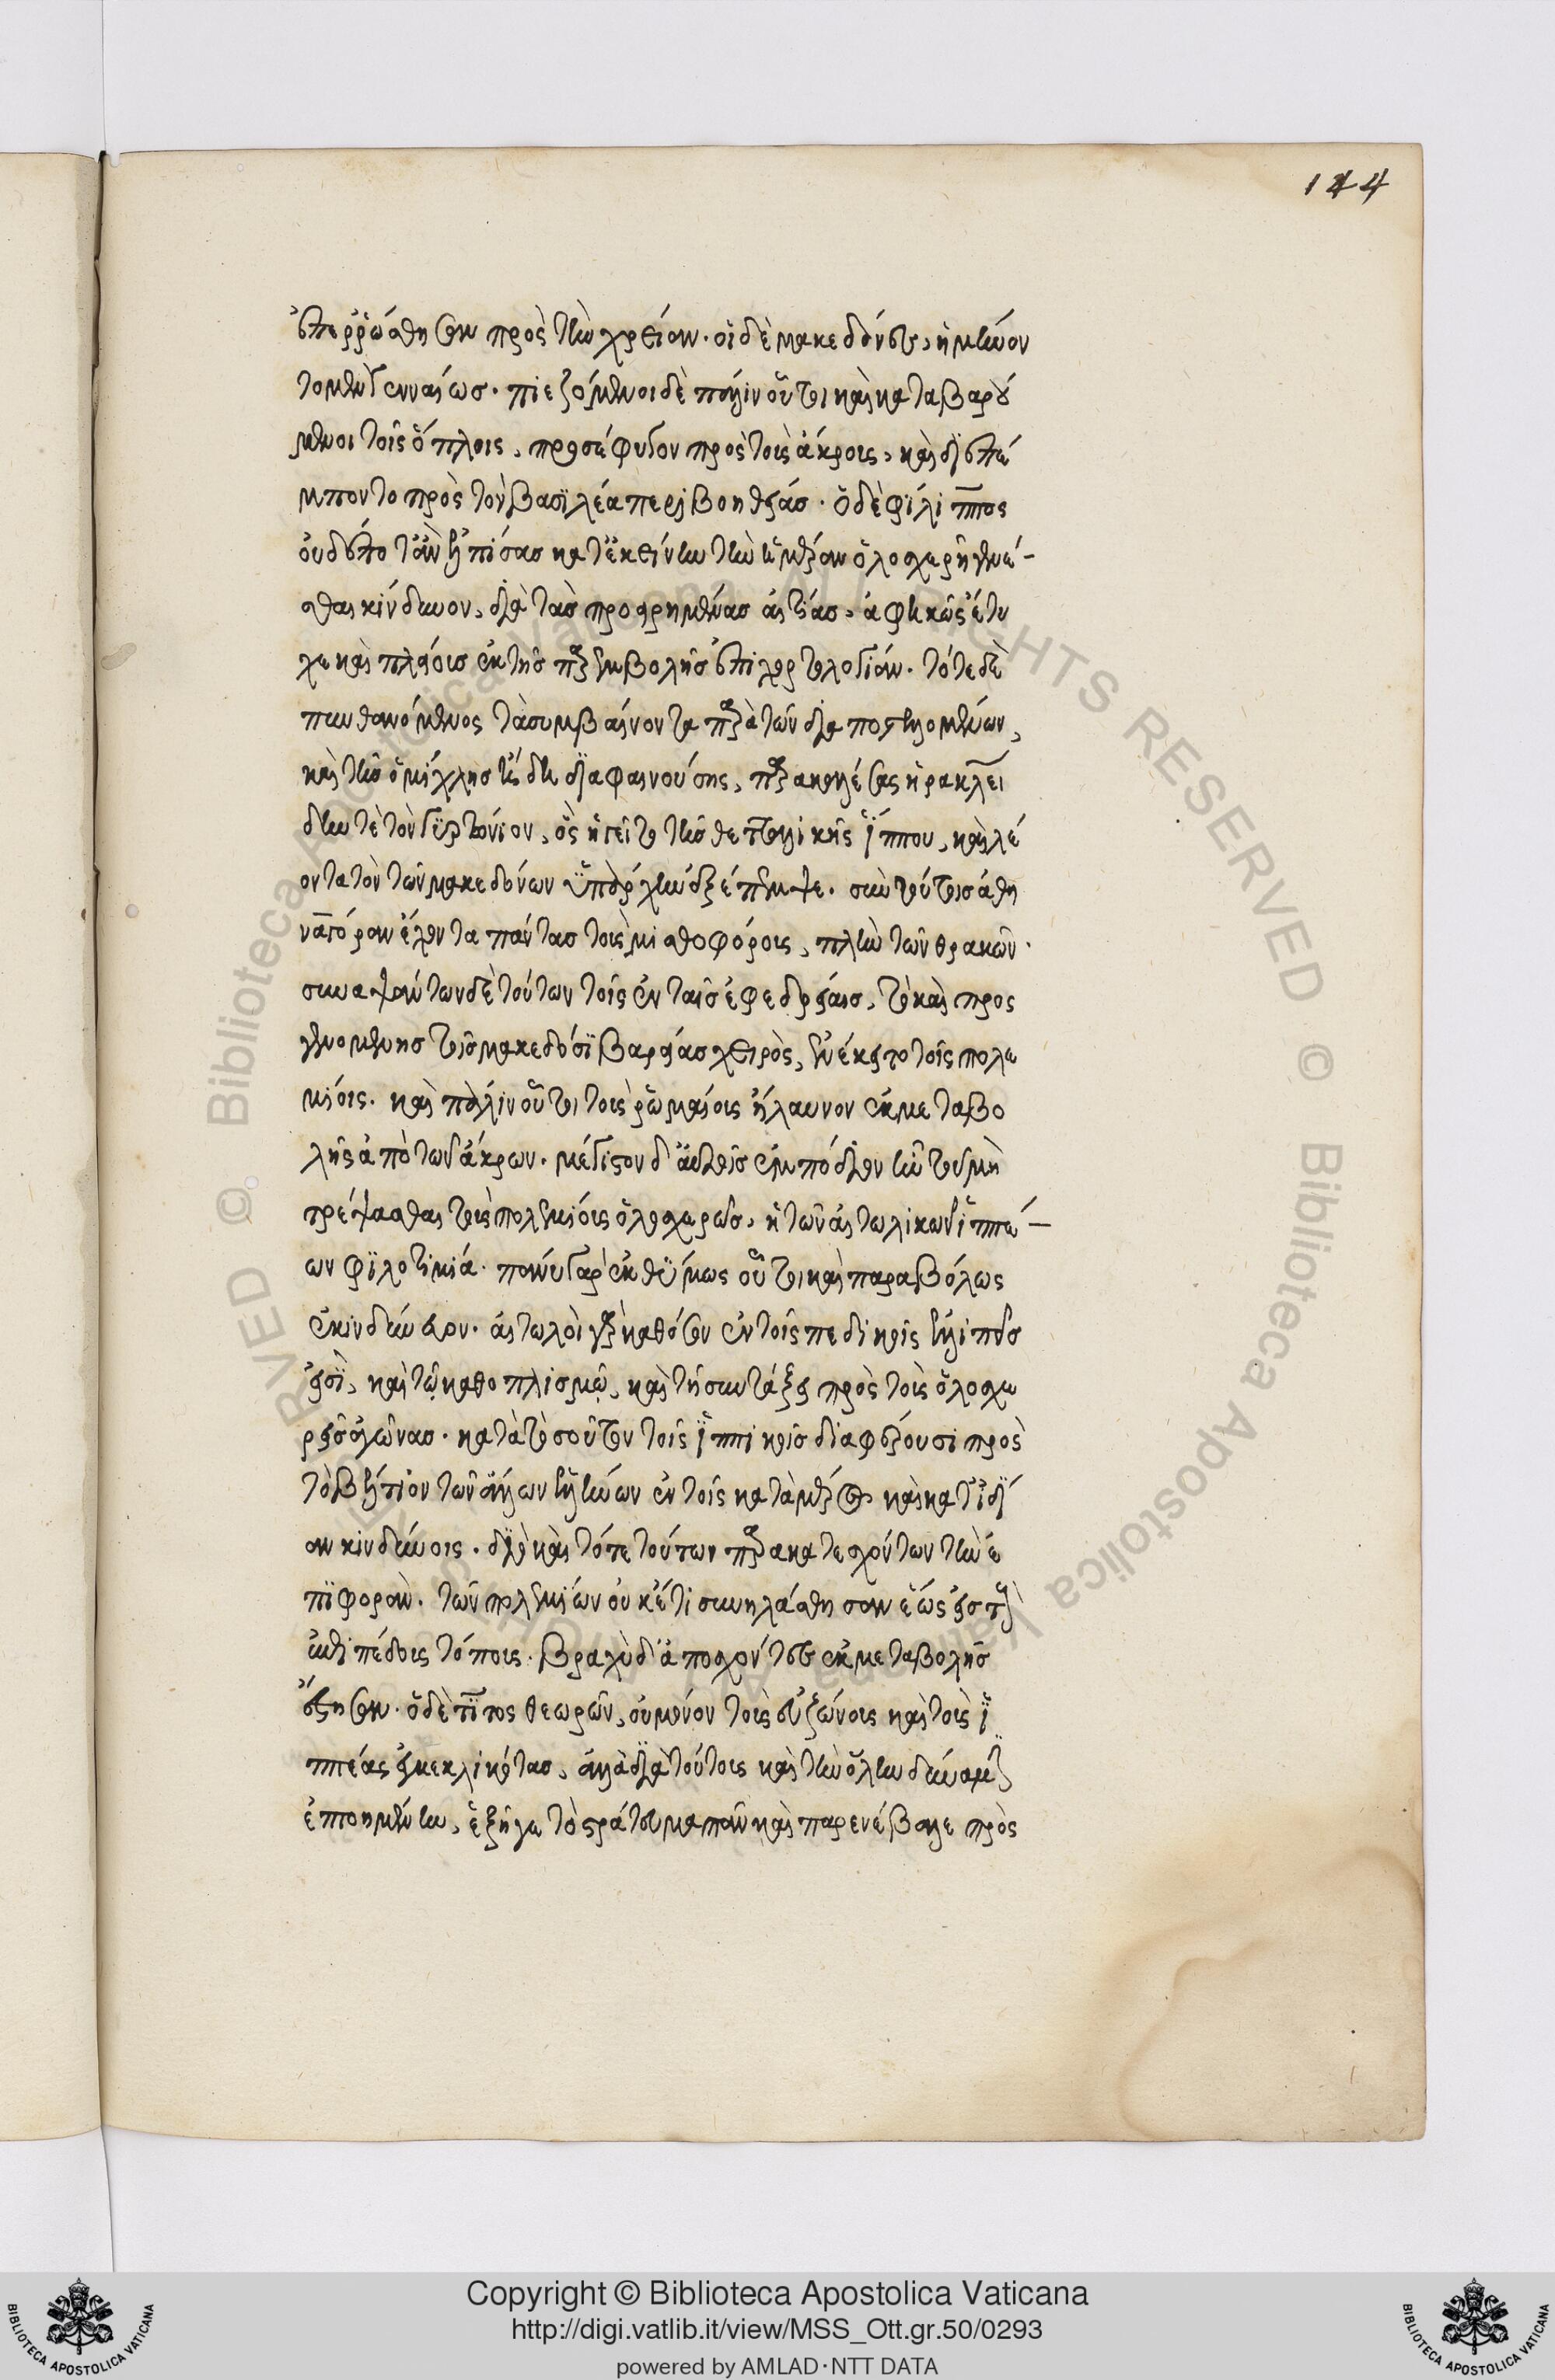 144
ἐπερρώσθησαν πρὸς τὴν χρείαν. οἱ δὲ μακεδόνες, ἠμύνον
το μὲν γενναίωσ. πιεζόμενοι δὲ πάλιν οὗτοι καὶ καταβαρού
μενοι τοῖς ὅπλοις, προσέφυγον πρὸς τοὺς ἄκρους, καὶ διεπέ
μποντο πρὸς τὸν βασιλέα περὶ βοηθείασ. ὁ δὲ φίλιππος
οὐδέποτ' ἂν ἐλπίσασ κατ' ἐκείνην τὴν ἡμέραν ὁλοσχερῆ γενέ-
σθαι κίνδυνον, διὰ τὰσ προειρημένασ αἰτίασ, ἀφεικὼς ἔτυ
χε καὶ πλείουσ ἐκ τῆσ παρεμβολῆσ ἐπὶ χορτολογίαν. τότε δὲ
πυνθανόμενος τὰ συμβαίνοντα παρὰ τῶν διαποστελλομένων,
καὶ τῆσ ὁμίχλησ ἤδη διαφαινούσης, παρακαλέσας ἡρακλεί
δην τὲ τὸν γυρτώνιον, ὃς ἡγεῖτο τῆσ θετταλικῆς ἵππου, καὶ λέ
οντα τὸν τῶν μακεδόνων ἵππάρχην ἐξέπεμπε. σὺν τούτοισ ἀθη
ναγόραν ἔχοντα πάντασ τοὺς μισθοφόρους, πλὴν τῶν θρακῶν.
συναψάντων δὲ τούτων τοῖς ἐν ταῖσ ἐφεδρείαισ, τὸ καὶ προς
γενομένησ τοῖσ μακεδόσι βαρείασ χειρὸς, ἐνέκειτο τοῖς πολε
μίοις. καὶ πάλιν οὗτοι τοὺς ῥωμαίους ἤλαυνον ἐκ μεταβο
λῆς ἀπὸ τῶν ἄκρων. μέγιστον δ' αὐτοῖσ ἐμπόδιον ἦν τοῦ μὴ
τρέψασθαι τοὺς πολεμίους ὁλοσχερῶσ, ἡ τῶν αἰτωλικῶν ἱππέ-
ων φιλοτιμία. πάνυ γὰρ ἐκθύμως οὗτοι καὶ παραβόλως
ἐκινδύνευον. αἰτωλοὶ γὰρ καθόσον ἐν τοῖς πεζικοῖς ἐλλιπεῖσ
εἰσὶ, καὶ τῷ καθοπλισμῷ, καὶ τῇ συντάξει πρὸς τοὺς ὁλοσχε
ρεῖσ ἀγῶνασ. κατὰ τοσοῦτον τοῖς ἱππικοῖσ διαφέρουσι πρὸς
τὸ βέλτιον τῶν ἄλλων ἑλλήνων ἐν τοῖς κατὰ μέροσ καὶ κατ' ἰδί
αν κινδύνοις. διὸ καὶ τότε τούτων παρακατεσχόντων τὴν ἐ
πιφορὰν. τῶν πολεμίων οὐκέτι συνηλάσθησαν ἕως εἰσ τοὺς
ἐπιπέδους τόπους. βραχὺ δ' ἀποσχόντες ἐκ μεταβολῆσ
ἔστησαν. ὁ δὲ τίτος θεωρῶν, οὐ μόνον τοὺς εὐζώνους καὶ τοὺς ἱ
ππέας ἐγκεκλικότασ, ἀλλὰ διὰ τούτους καὶ τὴν ὅλην δύναμιν
ἐπτοημένην, ἐξῆγε τὸ στράτευμα πᾶν καὶ παρενέβαλε πρὸς
Copyright © Biblioteca Apostolica Vaticana
http://digi.vatlib.it/view/MSS_Ott.gr.50/0293
powered by AMLAD·NTT DATA